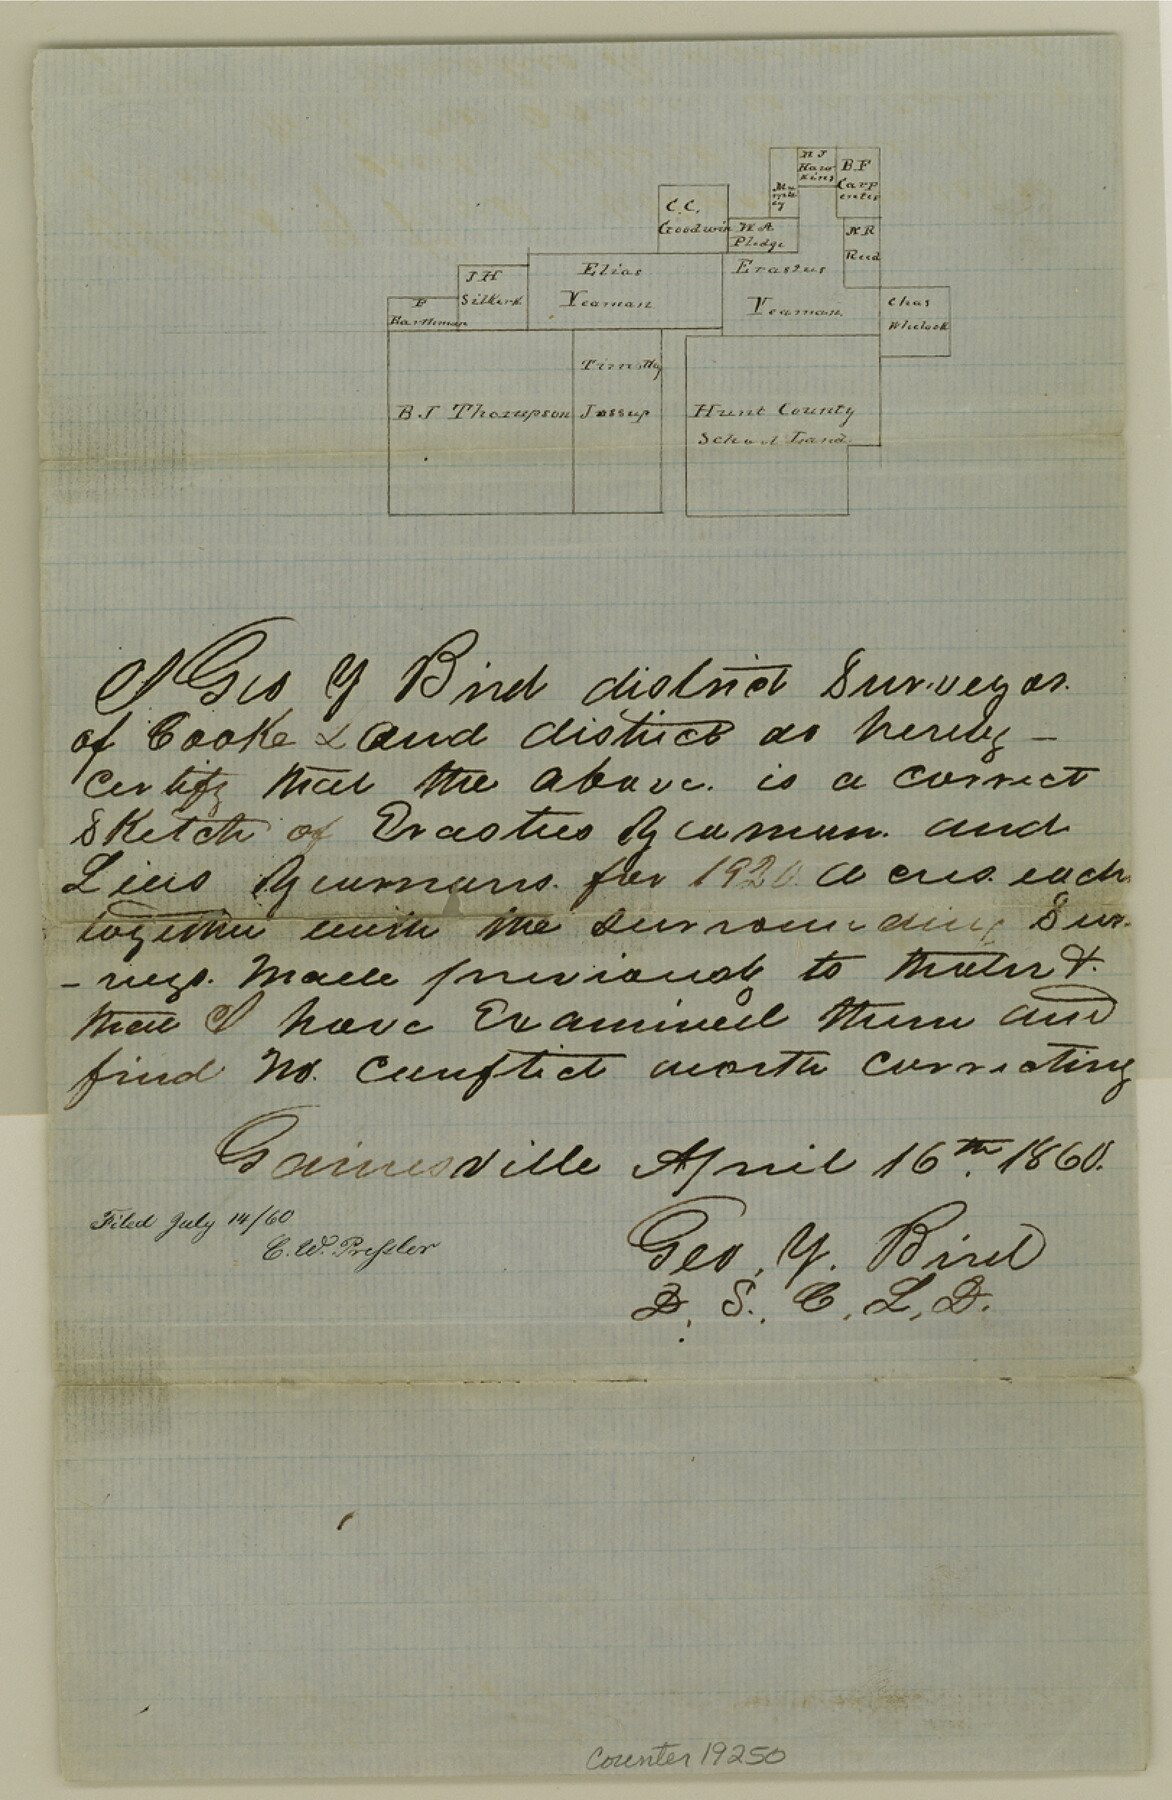 H J
Haw
kins
B F
Carp
enter
Mu
rph
ey
C. C.
Goodwin
W A
Pledge
N R
Reed
J H
Silkerk
Elias
Yeaman
Erastus
Yeaman
F
Bartleman
Chas
Whelock
Timothy
Jessup
B J Thompson
Hunt County
School Land
I Geo Y Bird district Surveyor
of Cooke Land district do hereby
certify that the above is a correct
Sketch of Erastus Yeaman and
Lias Yeamans for 1920 Acres each
together with the surrounding Sur-
-veys made previously to theirs &
that I have Examined them and
find No. conflict worth correcting
Gainesville April 16th 1860.
Filed July 14/60
C. W. Pressler
Geo. Y. Bird
D. S. C. L. D.
counter 19250